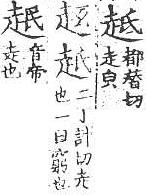 趆 都替切
走皃
二丁計切走
也一曰窮也
音帝
走也